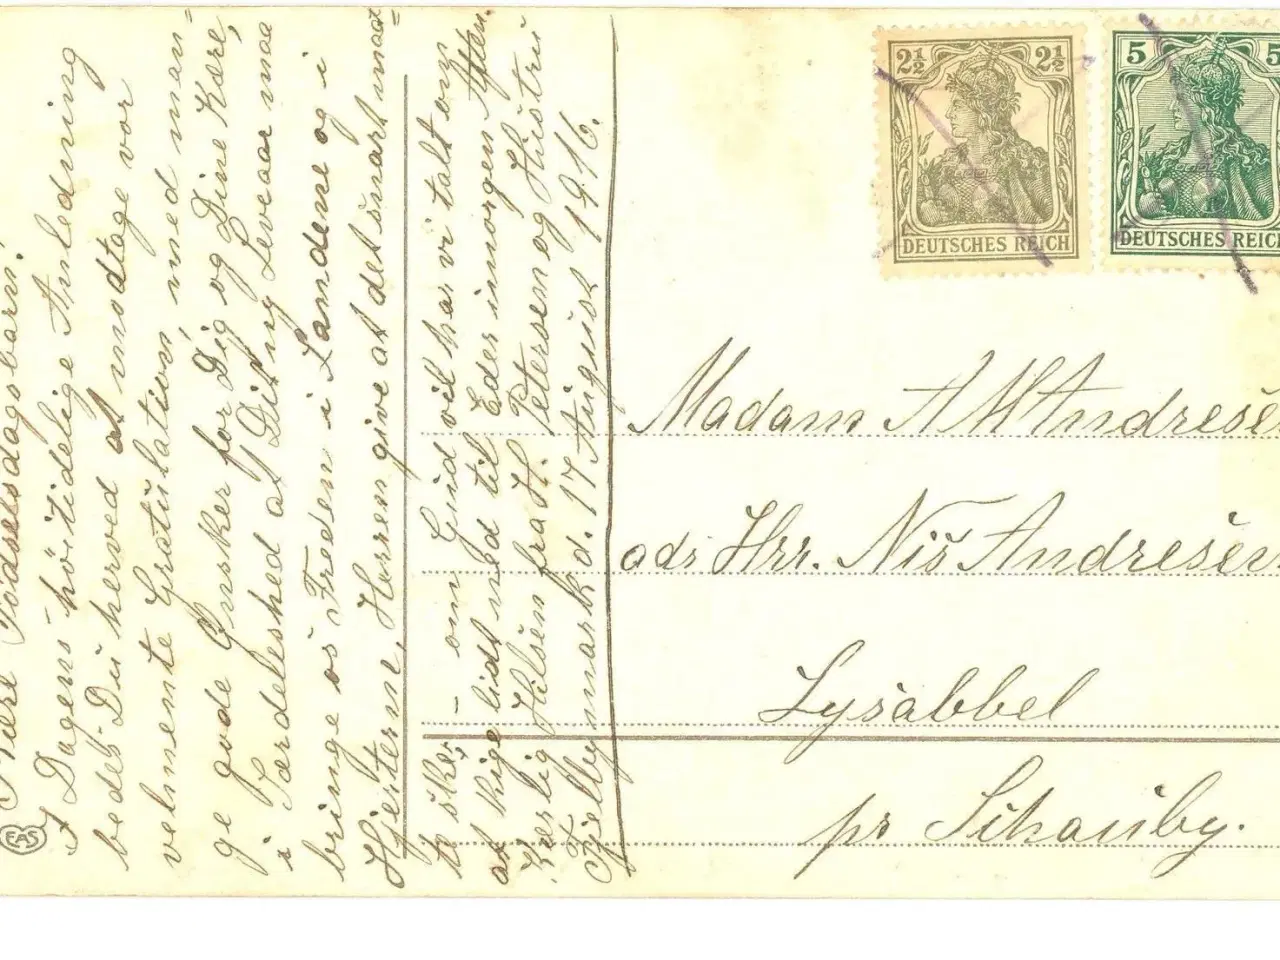 Kære Fødselsdagsbarn!
I Dagens höitidelige Anledning
bedes Du herved at modtage vor
velmente Gratulation, med man=
ge gode Ønsker for Dig og Dine Kære,
i Særdeleshed at Dit ny Leveaar maa
bringe os Freden i Landene og i
Hjertern, Herren give at det snart maat=
te ske, - om Gud vil har vi talt om
at kige lidt ned til Eder imorgen Aften.
Kærlig Hilsen fra H. Petersen og Hustru
Fjelbymark d. 17 August 1916.
EAS
2½ 2½
DEUTSCHES REICH
5 5
DEUTSCHES REICH
Madam A M Andresen
adr Hrr. Nis Andresen
Lysabbel
pr Schauby.